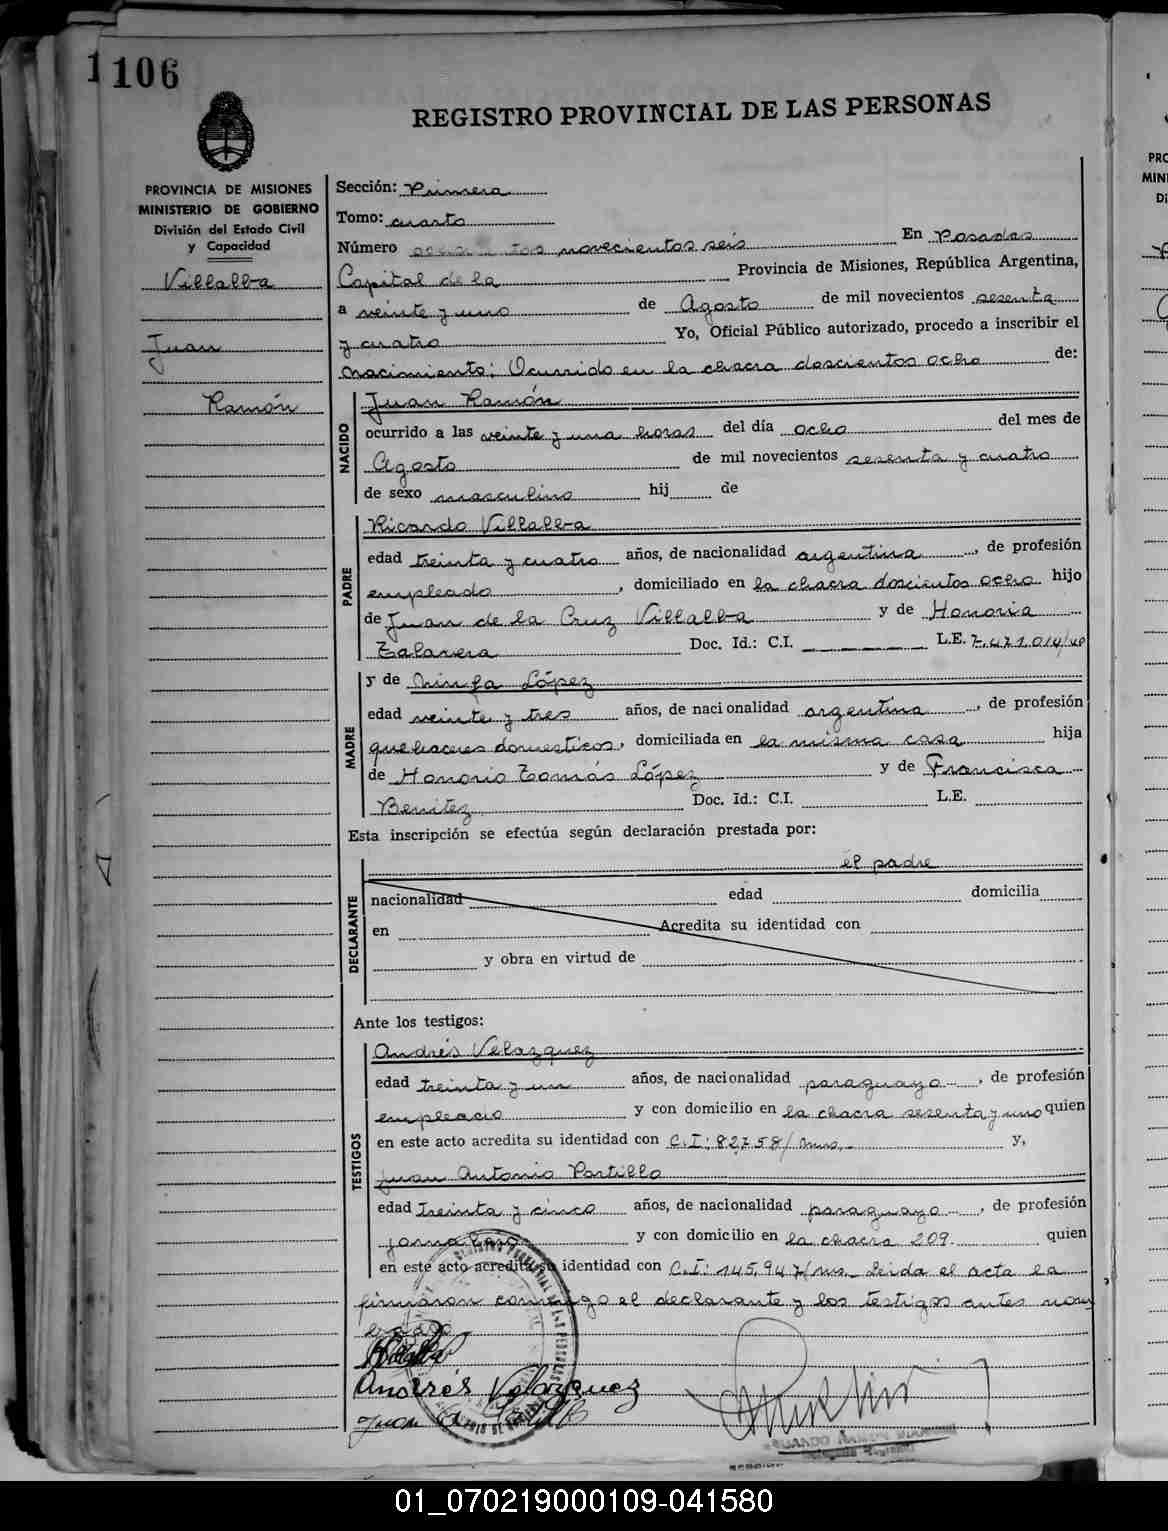 106
REGISTRO PROVINCIAL DE LAS PERSONAS
PROVINCIA DE MISIONES
MINISTERIO DE GOBIERNO
División del Estado Civil
y Capacidad
Villalba
Juan
Ramón
Sección: Primera
Tomo: cuarto
Número novecientos seis En Posadas
Capital de la Provincia de Misiones, República Argentina,
a veinte y uno de Agosto de mil novecientos sesenta
y cuatro Yo, Oficial Público autorizado, procedo a inscribir el
nacimiento: Ocurrido en la chacra doscientos ocho de:
NACIDO
Juan Ramón
ocurrido a las veinte y una horas del día ocho del mes de
Agosto de mil novecientos sesenta y cuatro
de sexo masculino hij de
PADRE
Ricardo Villalba
edad treinta y cuatro años, de nacionalidad argentina, de profesión
empleado, domiciliado en la chacra doscientos ocho hijo
de Juan de la Cruz Villalba y de Honoria
Talavera Doc. Id.: C.I. L.E. 7.471.014/
MADRE
y de Ninfa López
edad veinte y tres años, de nacionalidad argentina, de profesión
quehaceres domesticos, domiciliada en la misma casa hija
de Honorio Tomás López y de Francisca
Benitez Doc. Id.: C.I. L.E.
Esta inscripción se efectúa según declaración prestada por:
DECLARANTE
el padre
nacionalidad edad domicilia
en Acredita su identidad con
y obra en virtud de
Ante los testigos:
TESTIGOS
Andrés Velazquez
edad treinta y un años, de nacionalidad paraguayo, de profesión
empleado y con domicilio en la chacra sesenta y uno quien
en este acto acredita su identidad con C.I: 82758/mns.- y,
Juan Antonio Portillo
edad treinta y cinco años, de nacionalidad paraguayo, de profesión
jornalero y con domicilio en la chacra 209. quien
en este acto acredita su identidad con C.I: 145.947/ms. Leida el acta la
firmaron conmigo el declarante y los testigos antes nom
brado
Andrés Velazquez
Juan
01_070219000109-041580